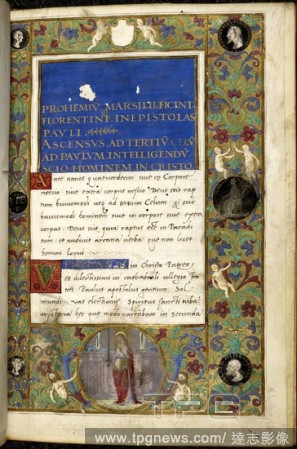 PROHEMIV MARSILII FICINI
FLORENTINI IN EPISTOLAS
PAVLI
ASCENSVS AD TERTIV CELV
AD PAVLVM INTELLIGENDV
SCIO HOMINEM IN CRISTO
Ante annos quatuordecim siue in corpore
siue extra corpus nescio Deus scit rap
tum huiusmodi usq ad tertium Celum & scio
huiusmodi hominem siue in corpore siue extra
corpus Deus scit quia raptus est in Paradi
sum et audiuit arcana uerba que non licet
homini loqui
in Christo Patres
Paulus apostolus gentium Sol
mundi Vas electionis Spiritus sancti tuba
mysteria hec que modo narrabam in secunda
TPG
www.tpgnews.com/達志影像